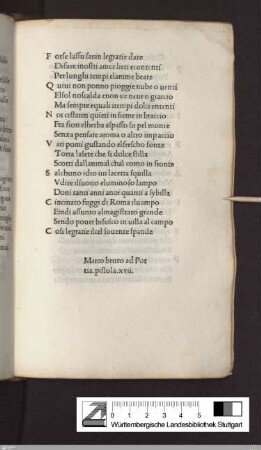 Forse lassu saran legratie date
Disare inostri amor lieti econtenti
Per lunghi tempi elanime beate
Quiui non ponno pioggie nube o uenti
Elsol noscalda enon ue neue o giaccio
Ma sempre equali itempi dolci ententi
Noi staremo quieti insieme in braccio
Fra fiori elherba aspasso su pel monte
Senza pensare aroma o altro impaccio
Vari pomi gustando elfrescho fonte
Torra lasete che si dolce stilla
Scorti dallanimal chal corno in fronte
Salchuno idio ius lacetta squilla
Vdire ilsuono aluminoso lampo
Doni tanti anni anoi quanti a sybilla
Cincinato fuggi di Roma iluampo
Eindi assunto almagistrato grande
Sendo pouer bifolco in uilla al campo
Cosi legratie ilciel souente spande
Marco bruto ad Por
tia. pistola.xvii.
cm 1 2 3 4 5
Württembergische Landesbibliothek Stuttgart